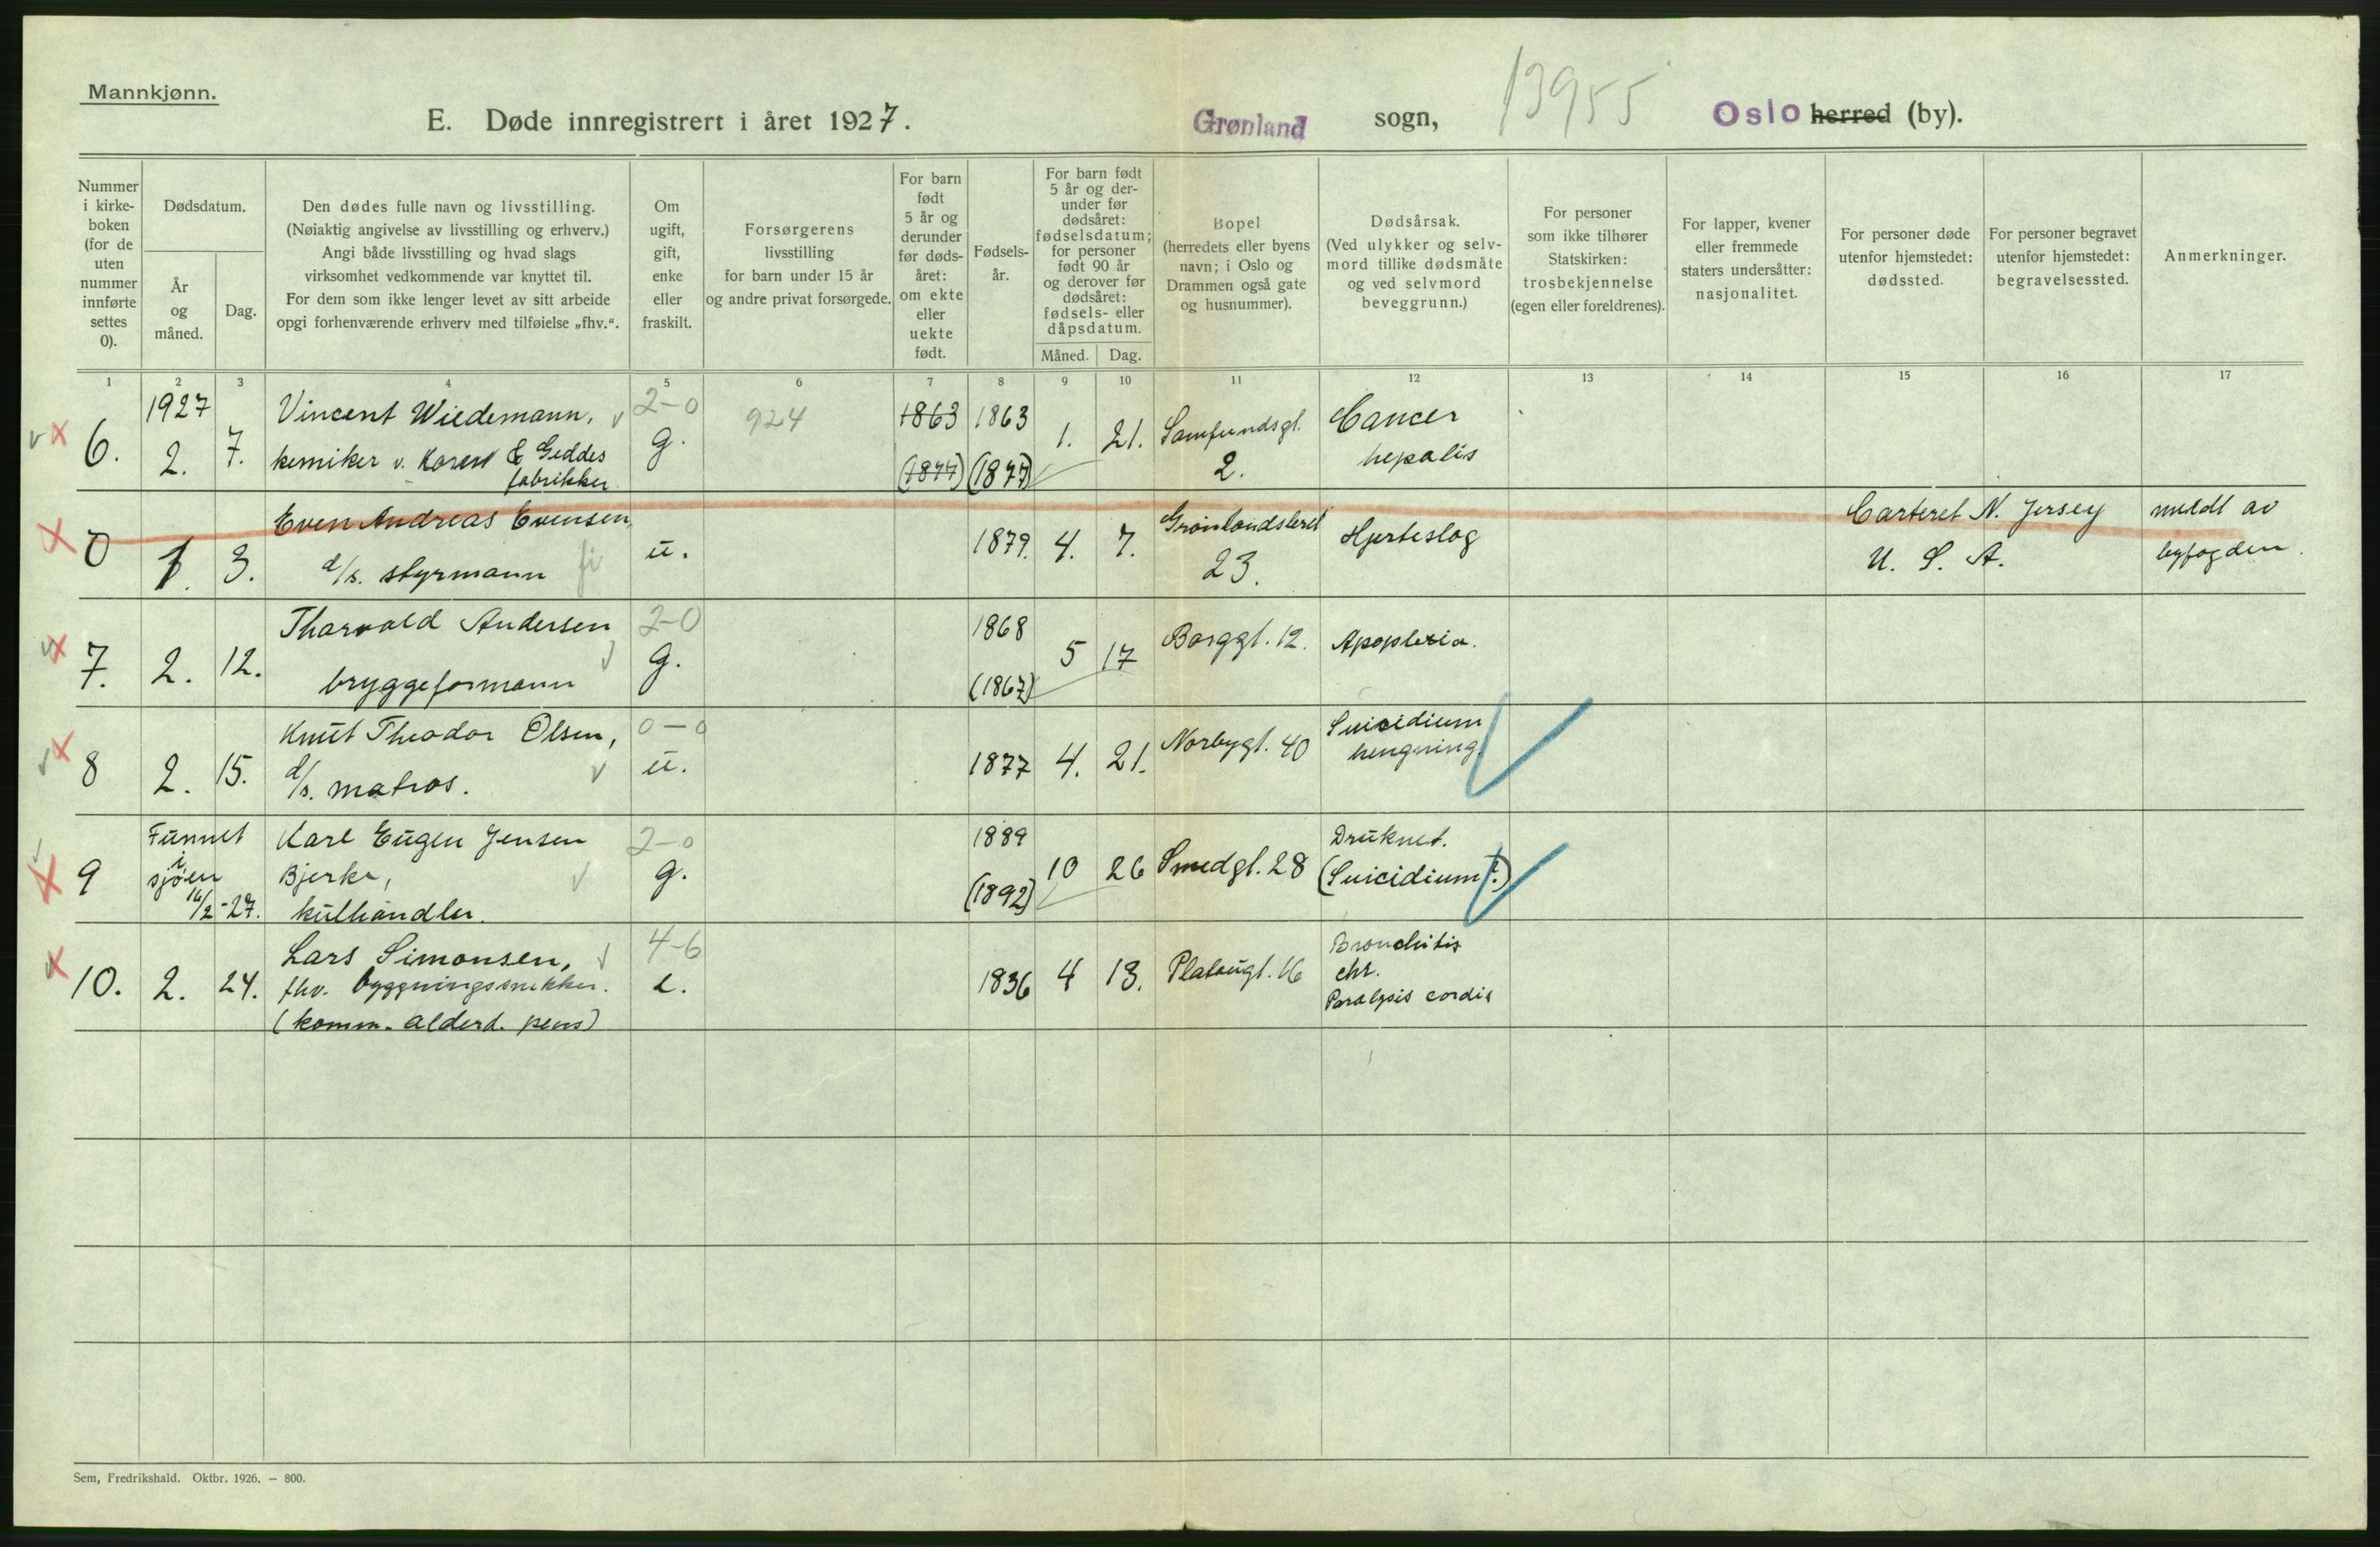 Mannkjønn.
E. Døde innregistrert i året 1927.
Grønland sogn,
13955
Oslo herred (by).
Nummer i kirke- boken (for de uten nummer innførte settes 0).
Dødsdatum.
År og måned.
Dag.
Den dødes fulle navn og livsstilling.
(Nøiaktig angivelse av livsstilling og erhverv.)
Angi både livsstilling og hvad slags
virksomhet vedkommende var knyttet til.
For dem som ikke lenger levet av sitt arbeide
opgi forhenværende erhverv med tilføielse „fhv.“.
Om ugift, gift, enke eller fraskilt.
Forsørgerens
livsstilling
for barn under 15 år
og andre privat forsørgede.
For barn født 5 år og derunder før døds- året: om ekte eller uekte født.
Fødsels- år.
For barn født 5 år og der- under før dødsåret: fødselsdatum; for personer født 90 år og derover før dødsåret: fødsels- eller dåpsdatum.
Måned. Dag.
Bopel
(herredets eller byens
navn; i Oslo og
Drammen også gate
og husnummer).
Dødsårsak.
(Ved ulykker og selv-
mord tillike dødsmåte
og ved selvmord
beveggrunn.)
For personer
som ikke tilhører
Statskirken:
trosbekjennelse
(egen eller foreldrenes).
For lapper, kvener
eller fremmede
staters undersåtter:
nasjonalitet.
For personer døde
utenfor hjemstedet:
dødssted.
For personer begravet
utenfor hjemstedet:
begravelsessted.
Anmerkninger.
1 2 3 4 5 6 7 8 9 10 11 12 13 14 15 16 17
1927 Vincent Wiedemann, 2-0 924 1863 1863 Samfundsgt. Cancer
6. 2. 7. kemiker v. Koren & Geddes g. 1. 21. 2. hepatis
fabrikker (1877) (1877)
Even Andreas Evensen, Grønlandsleret Carteret N. Jersey meldt av
0 1. 3. d/s. styrmann fi u. 1879. 4. 7. 23. Hjerteslag U. S. A. byfogden.
Tharvald Andersen 2-0 1868
7. 2. 12. bryggeformann g. (1867) 5 17 Borggt. 12. Apoplexia.
Knut Theodor Olsen, 0-0 Suicidium
8 2. 15. d/s. matros. u. 1877 4. 21. Norbygt. 40 hengning.
Funnet Karl Eugen Jensen 2-0 1889 Druknet.
9 i sjøen Bjerke, g. 10 26 Smedgt. 28 (Suicidium?)
16/2-27. kullhandler. (1892)
Lars Simonsen, 4-6 Bronchitis
10. 2. 24. fhv. bygningssnekker. e. 1836 4 13. Platougt. 16 chr.
(komm. alderd. pens) Paralysis cordis
Sem, Fredrikshald. Oktbr. 1926. — 800.